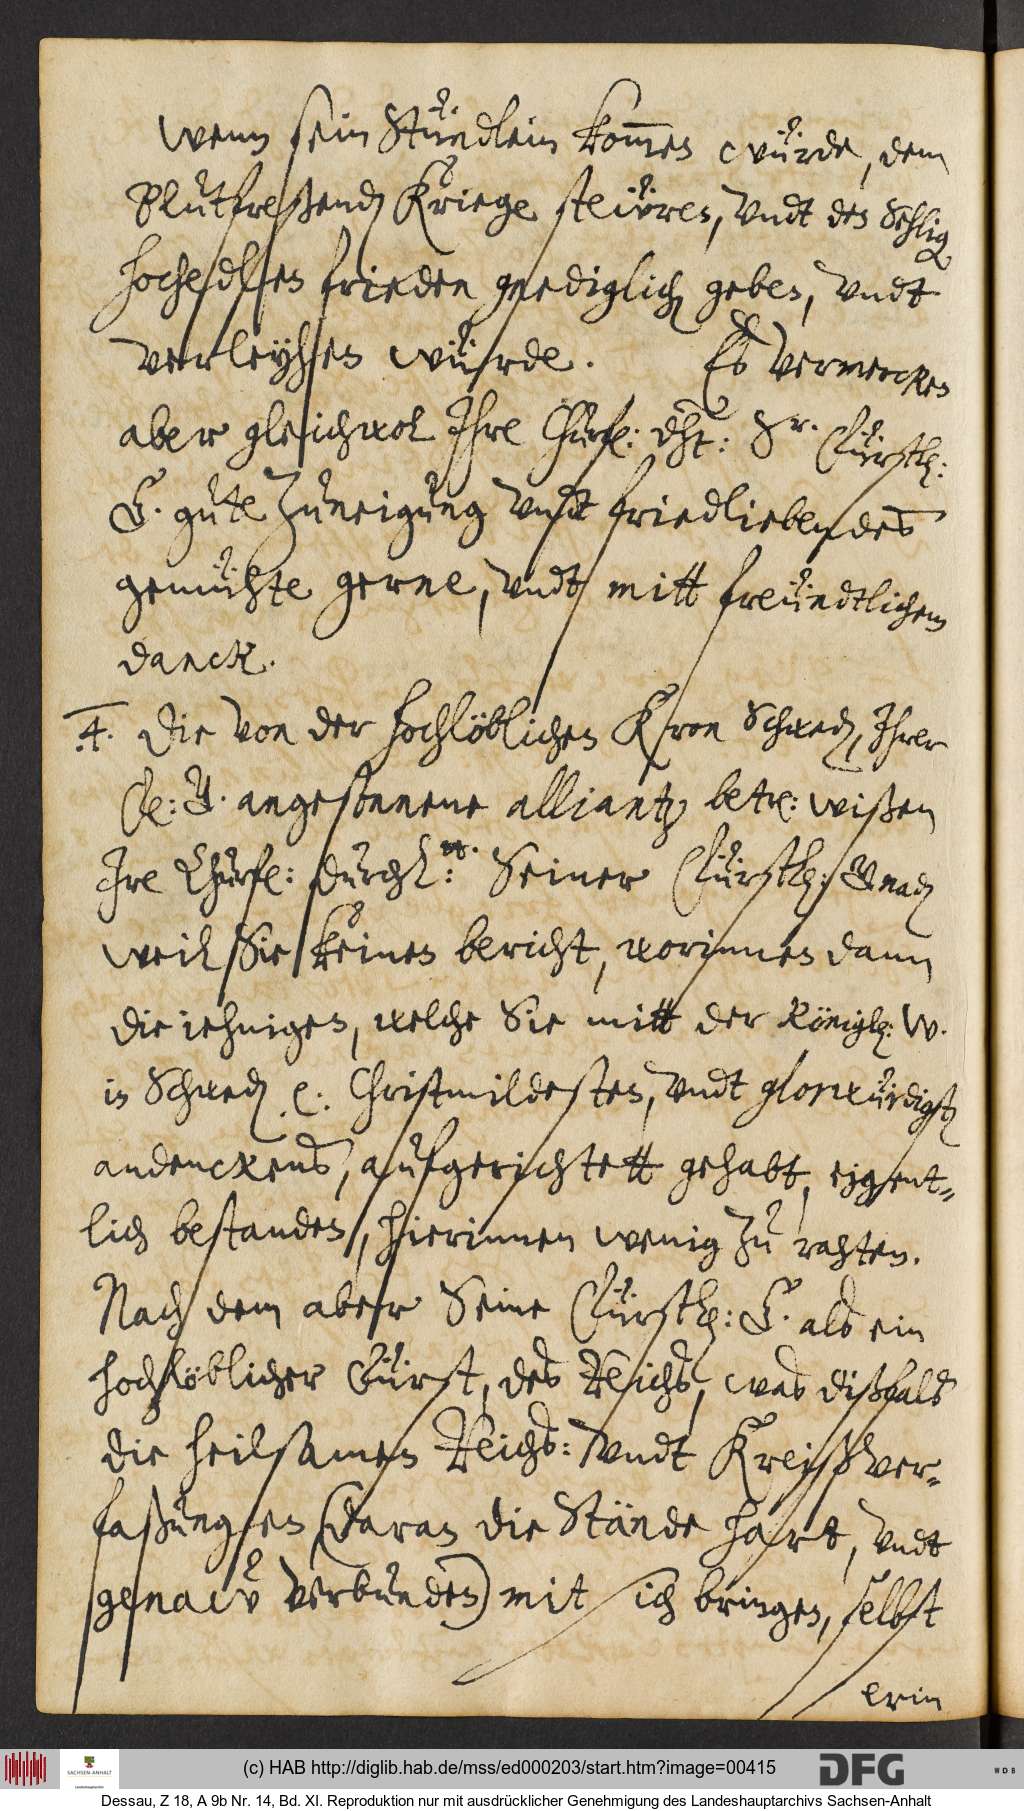 wenn sein Stündlein kom̄en würde, dem
Blutfreßend Kriege steüren, undt den Sehlig
hochedlen frieden gnediglich geben, undt
verleÿhen würde. Es vermercken
aber gleichwol Ihre Churfl: dht: Sr. Fürstl:
G. gute Zuneigung undt friedliebendes
gemühte gerne, undt mitt freündtlichem
danck.
.4. Die von der hochlöblichen Kron Schwed, Ihrer
F: G. angesonnene alliantz betr: wißen
Ihre Churfl: Durchl: Seiner Fürstl: Gnad
weil Sie keinen bericht, worinnen dann
die iehnigen, welche Sie mitt der Königl: W.
in Schwed e: Christmildesten, undt glorwürdigst
andenckens, aufgerichtett gehabt, eigent-
lich bestanden, hierinnen wenig zu rahten.
Nach dem aber Seine Fürstl: G. als ein
hochlöblicher Fürst, des Reichs, was dißfals
die heilsamen Reichs: undt Kreißver-
faßungen (daran die Stände hart, undt
genaw verbunden) mit sich bringen, selbst
erin
(c) HAB http://diglib.hab.de/mss/ed000203/start.htm?image=00415
SACHSEN-ANHALT
Landeshauptarchiv
DFG
WDB
Dessau, Z 18, A 9b Nr. 14, Bd. XI. Reproduktion nur mit ausdrücklicher Genehmigung des Landeshauptarchivs Sachsen-Anhalt